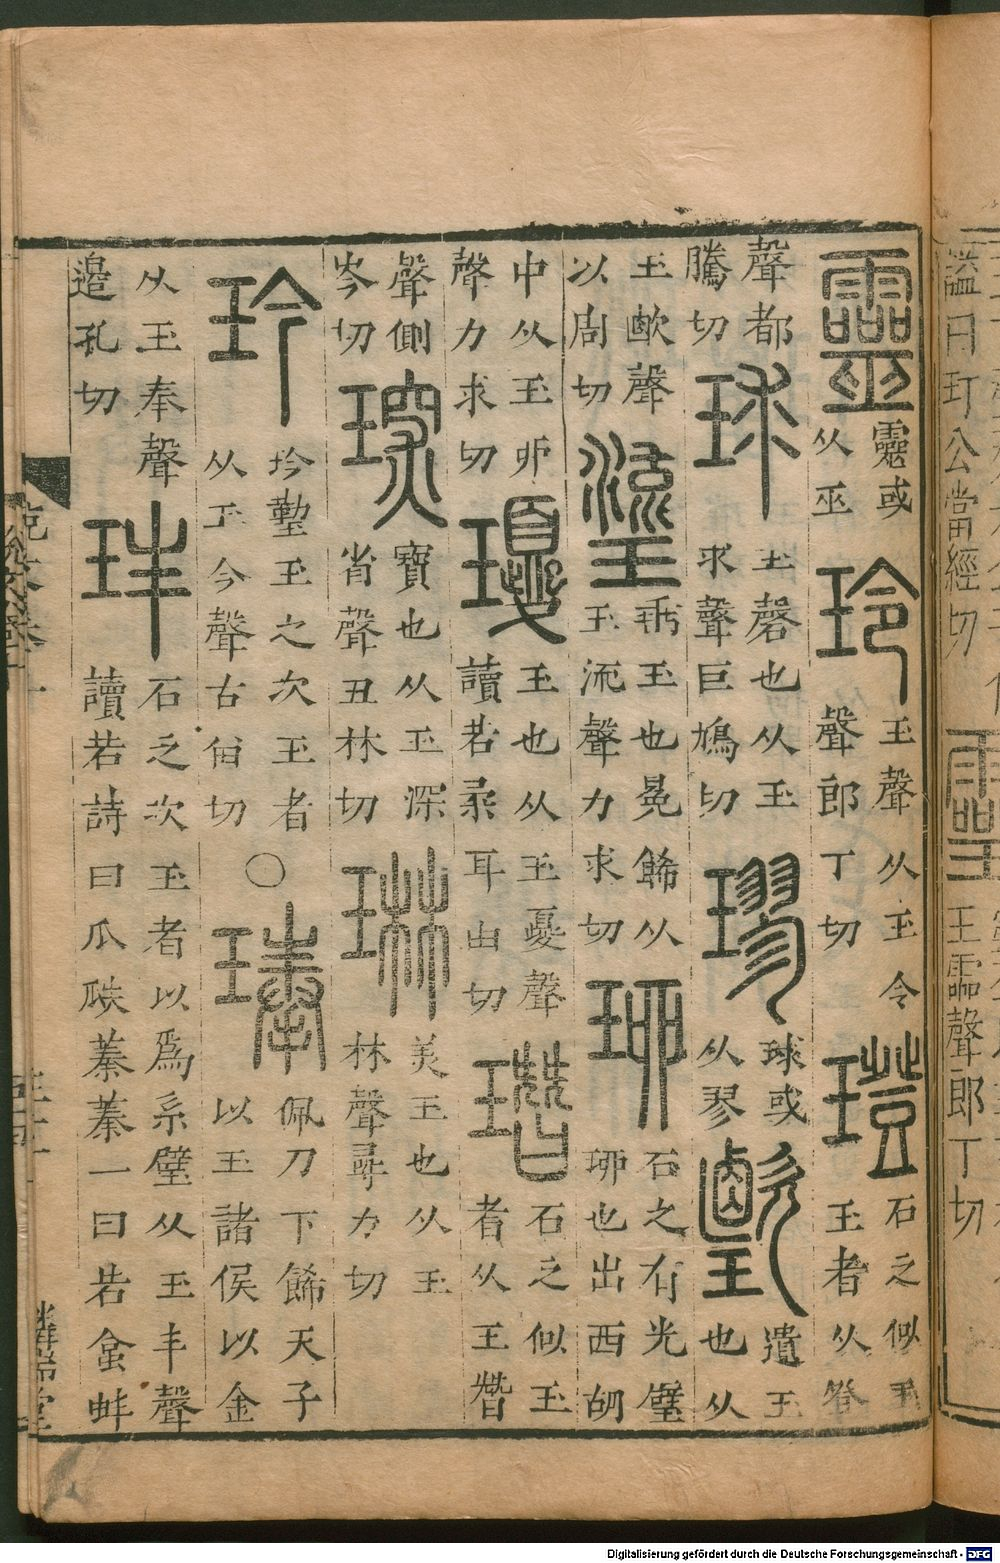 謚曰玎公當經切 玉霝聲郎丁切
靈 靈或从巫 玲 玉聲从玉令聲郎丁切 璒 石之似玉者从玉登
聲都騰切 球 玉磬也从玉求聲巨鳩切 璆 球或从翏 遺玉也从
玉歐聲以周切 瑬 垂玉也冕飾从玉流聲力求切 珋 石之有光璧珋也出西胡
中从玉丣聲力求切 瓇 玉也从玉憂聲讀若柔耳由切 石之似玉者从玉朁
聲側岑切 琛 寶也从玉深省聲丑林切 琳 美玉也从玉林聲尋力切
玪 玪䥗玉之次玉者从玉今聲古函切 ○ 琫 佩刀下飾天子以玉諸侯以金
从玉奉聲邉孔切 玤 石之次玉者以爲系璧从玉丰聲讀若詩曰瓜瓞菶菶一曰若盒蚌
Digitalisierung gefördert durch die Deutsche Forschungsgemeinschaft - DFG